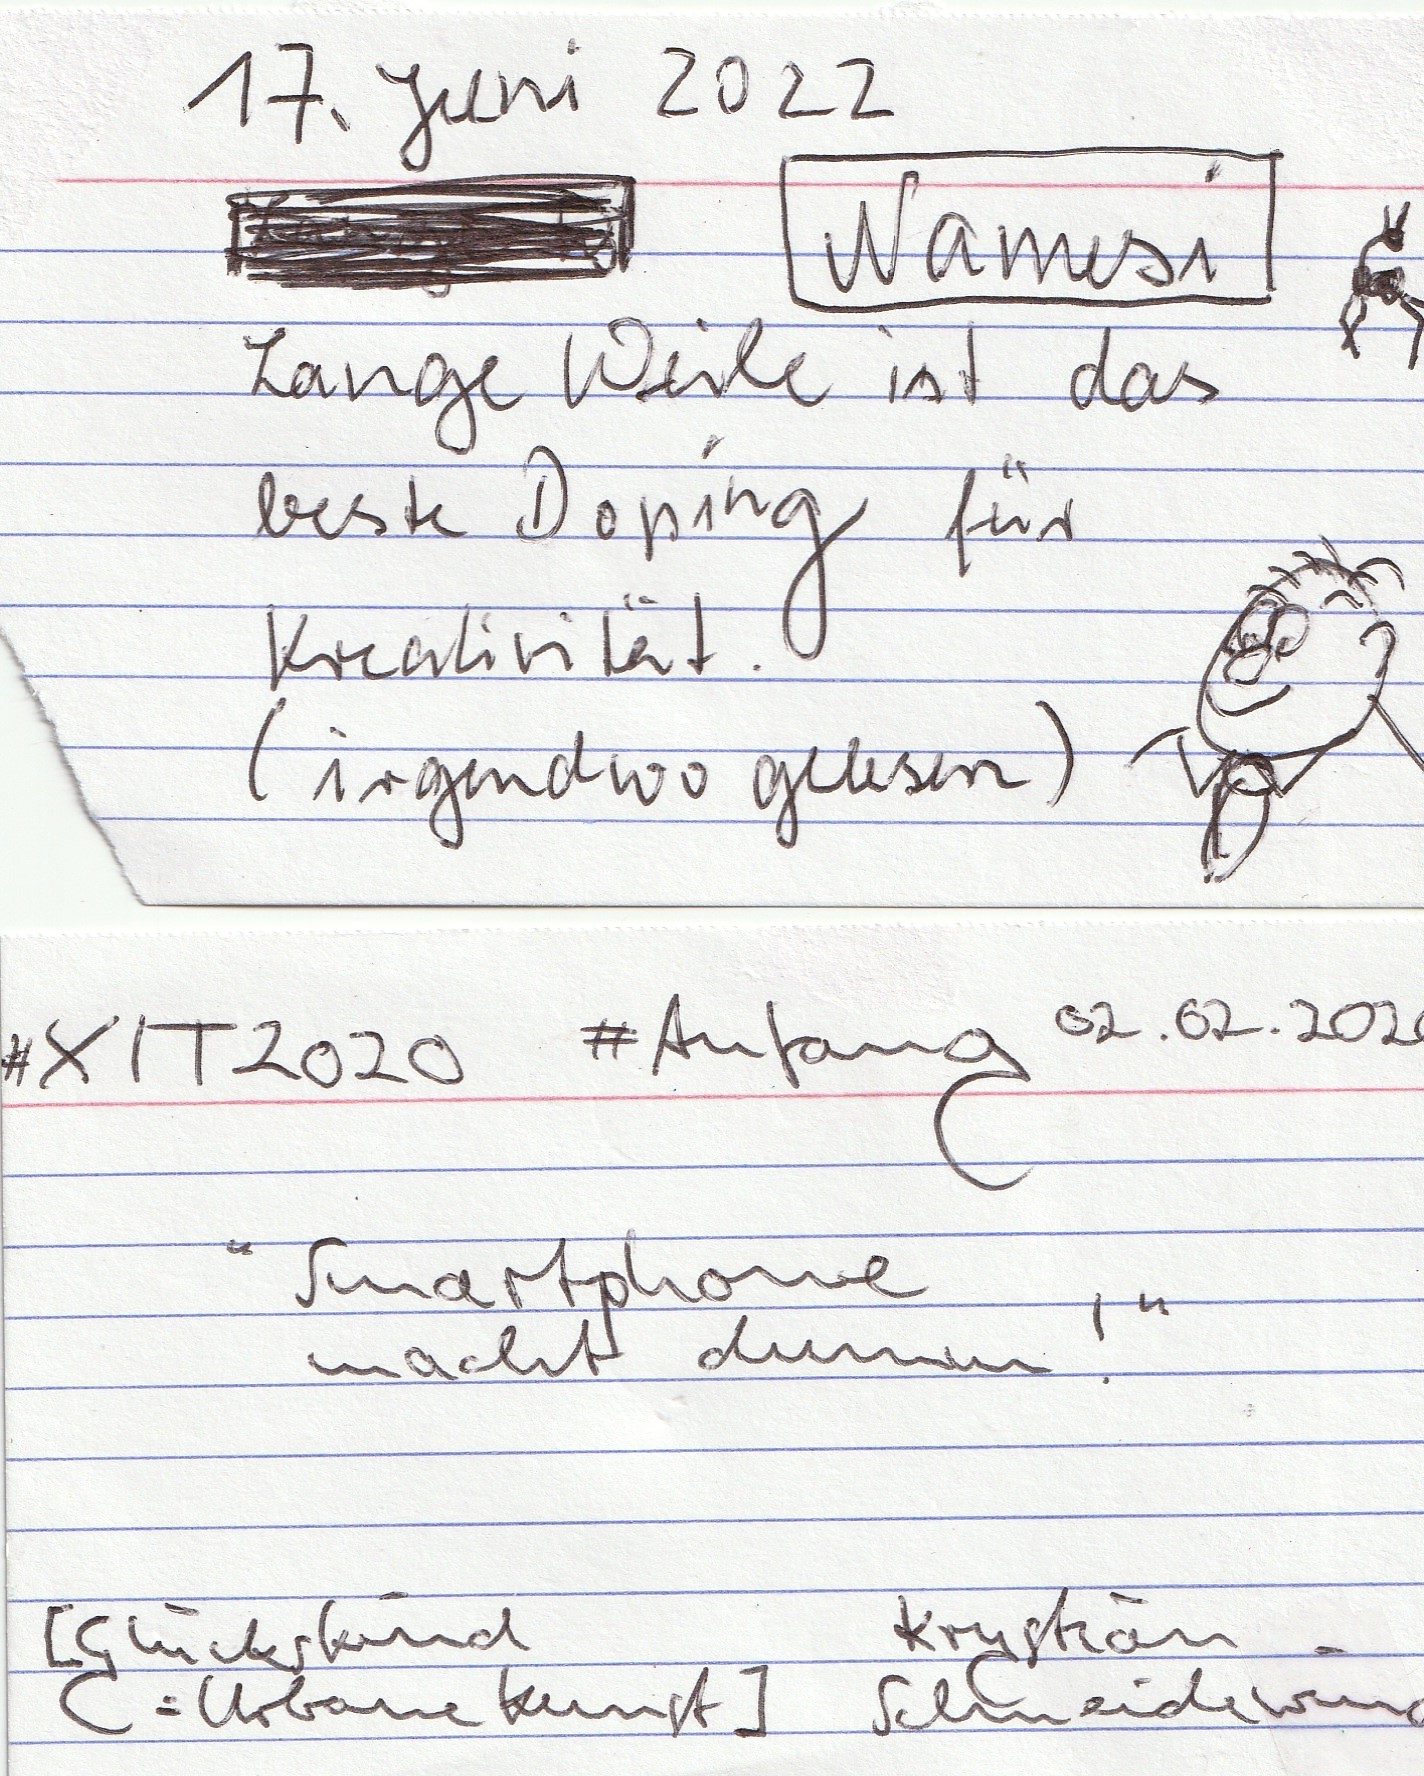 17. Juni 2022
Namesi
Lange Weile ist das
beste Doping für
Kreativität.
(irgendwo gelesen)
#XIT2020 #Anfang 02.02.2020
"Smartphone
macht dumm!"
[Glückskind Krystian
=Urbane Kunst] Schneidewind